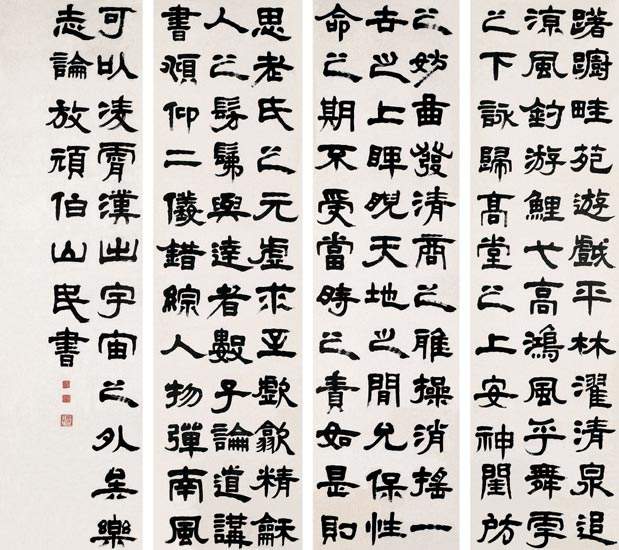 躇躕畦苑遊戲平林濯清泉追
涼風釣游鯉弋高鴻風乎舞雩
之下詠歸高堂之上安神閨房
之妙曲發清商之雅操消搖一
世之上睥睨天地之間永保性
命之期不受當時之責如是則
思老氏之元虛求至歔歙精龢
人之髣髴與達者數子論道講
書頫仰二儀錯綜人物彈南風
可以凌霄漢出宇宙之外矣樂
志論放頑伯山民書